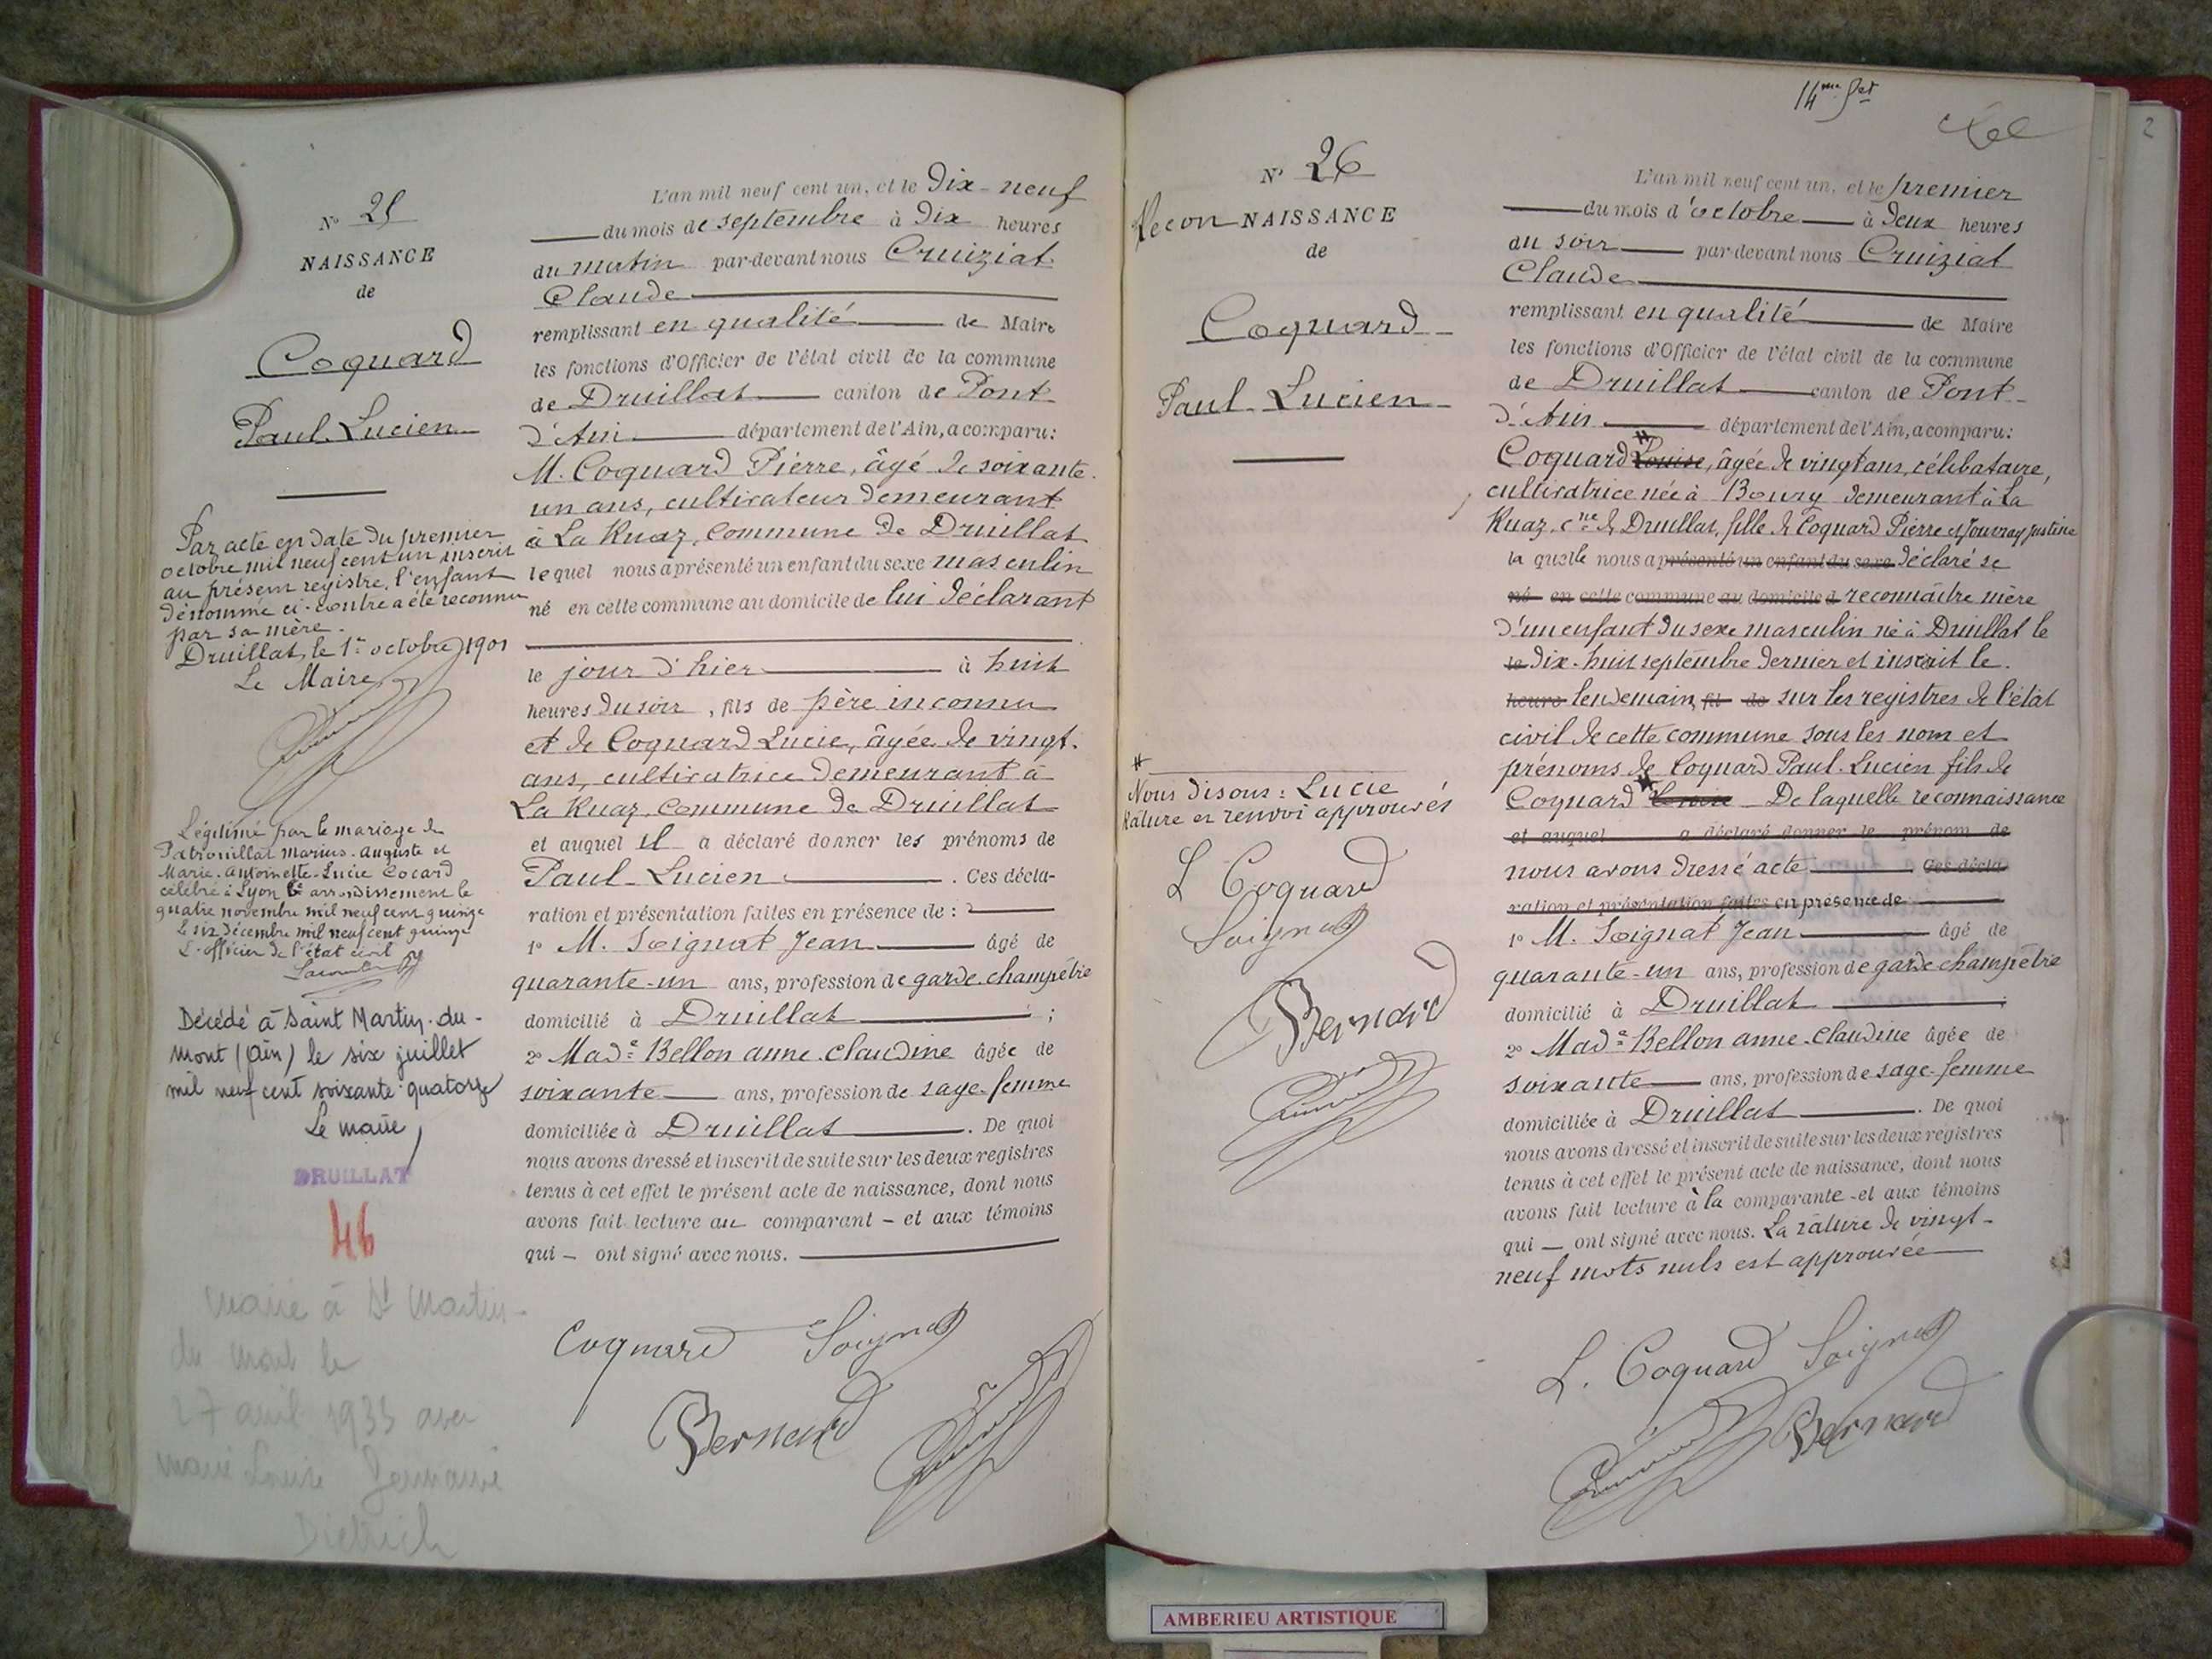 N° 25
NAISSANCE
de
Coquard
Paul-Lucien
Par acte en date du premier
octobre mil neuf cent un inscrit
au présent registre, l'enfant
dénommé ci-contre a été reconnu
par sa mère.
Druillat, le 1er octobre 1901
Le Maire
Légitimé par le mariage de
Patrouillat Marius-Auguste et
Marie-Antoinette-Lucie Cocard
célébré à Lyon 6e arrondissement le
quatre novembre mil neuf cent quinze
Le six décembre mil neuf cent quinze
L'officier de l'état civil
Décédé à Saint Martin-du-
Mont (Ain) le six juillet
mil neuf cent soixante-quatorze
Le maire,
DRUILLAT
46
Marié à St Martin-
du Mont le
27 avril 1933 avec
Marie Louise Germaine
Dietrich
L'an mil neuf cent un, et le dix-neuf
du mois de septembre à dix heures
du matin par-devant nous Cruiziat
Claude
remplissant en qualité de Maire
les fonctions d'Officier de l'état civil de la commune
de Druillat canton de Pont-
d'Ain département de l'Ain, a comparu:
M. Coquard Pierre, âgé de soixante-
un ans, cultivateur demeurant
à La Ruaz, commune de Druillat
lequel nous a présenté un enfant du sexe masculin
né en cette commune au domicile de lui déclarant
le jour d'hier à huit
heures du soir, fils de père inconnu
et de Coquard Lucie, âgée de vingt-
ans, cultivatrice demeurant à
La Ruaz, commune de Druillat
et auquel il a déclaré donner les prénoms de
Paul-Lucien. Ces décla-
ration et présentation faites en présence de :
1° M. Soignat Jean âgé de
quarante-un ans, profession de garde-champêtre
domicilié à Druillat ;
2° Made Bellon anne-claudine âgée de
soixante ans, profession de sage-femme
domiciliée à Druillat. De quoi
nous avons dressé et inscrit de suite sur les deux registres
tenus à cet effet le présent acte de naissance, dont nous
avons fait lecture au comparant - et aux témoins
qui - ont signé avec nous.
Coquard Soignat
Bernard
14me
N° 26
Recon NAISSANCE
de
Coquard
Paul-Lucien
Nous disons : Lucie
Rature et renvoi approuvés
L Coquard
Soignat
Bernard
L'an mil neuf cent un, et le premier
du mois d'octobre à deux heures
du soir par-devant nous Cruiziat
Claude
remplissant en qualité de Maire
les fonctions d'Officier de l'état civil de la commune
de Druillat canton de Pont-
d'Ain département de l'Ain, a comparu:
Coquard Louise, âgée de vingt ans, célibataire,
cultivatrice née à Bourg demeurant à La
Ruaz, cne de Druillat, fille de Coquard Pierre et Justine
la quelle nous a présenté un enfant du sexe déclaré se
né en cette commune au domicile d reconnaître mère
d'un enfant du sexe masculin né à Druillat le
le dix-huit septembre dernier et inscrit le
heure lendemain, fil de sur les registres de l'état
civil de cette commune sous les nom et
prénoms de Coquard Paul-Lucien fils de
Coquard Louise De laquelle reconnaissance
et auquel a déclaré donner le prénom de
nous avons dressé acte. Ces décla-
ration et présentation faites en présence de
1° M. Soignat Jean âgé de
quarante-un ans, profession de garde-champêtre
domicilié à Druillat ;
2° Made Bellon anne-claudine âgée de
soixante ans, profession de sage-femme
domiciliée à Druillat. De quoi
nous avons dressé et inscrit de suite sur les deux registres
tenus à cet effet le présent acte de naissance, dont nous
avons fait lecture à la comparante - et aux témoins
qui - ont signé avec nous. La rature de vingt-
neuf mots nuls est approuvée
L. Coquard Soignat
Bernard
2
AMBERIEU ARTISTIQUE